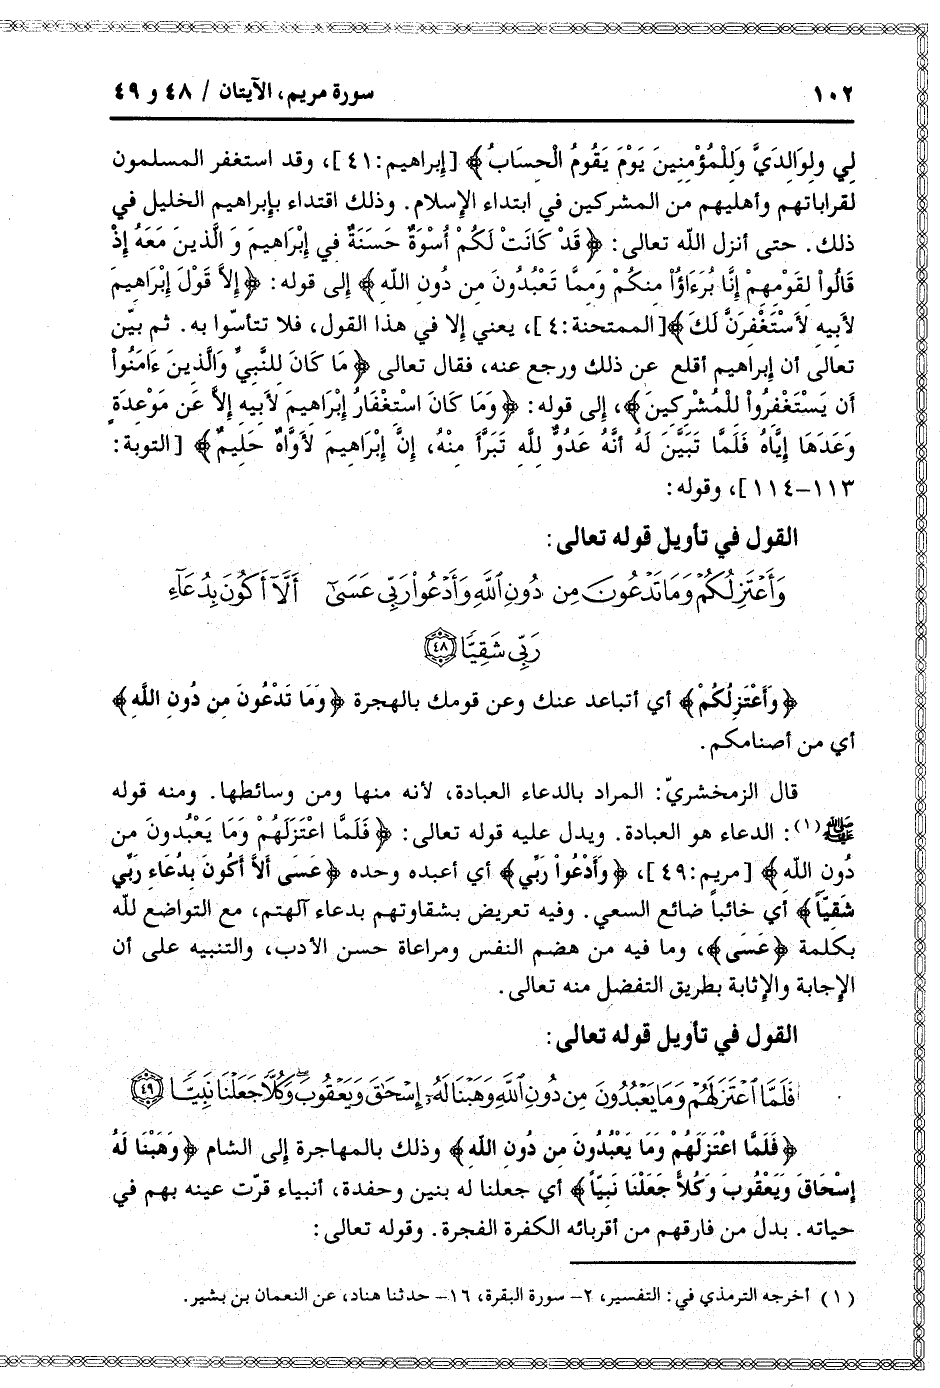 ١٠٢ سورة مريم، الآيتان / ٤٨ و ٤٩
لِي وَلِوَالِدَيَّ وَلِلْمُؤْمِنِينَ يَوْمَ يَقُومُ الْحِسَابُ ﴾ [إبراهيم:٤١]، وقد استغفر المسلمون
لقراباتهم وأهليهم من المشركين في ابتداء الإسلام. وذلك اقتداء بإبراهيم الخليل في
ذلك. حتى أنزل الله تعالى: ﴿ قَدْ كَانَتْ لَكُمْ أُسْوَةٌ حَسَنَةٌ فِي إِبْرَاهِيمَ وَ الَّذِينَ مَعَهُ إِذْ
قَالُواْ لِقَوْمِهِمْ إِنَّا بُرَءَاؤُاْ مِنكُمْ وَمِمَّا تَعْبُدُونَ مِن دُونِ اللهِ ﴾ إلى قوله: ﴿ إِلاَّ قَوْلَ إِبْرَاهِيمَ
لأَبِيهِ لأَسْتَغْفِرَنَّ لَكَ ﴾[الممتحنة:٤]، يعني إلا في هذا القول، فلا تتأسّوا به. ثم بيّن
تعالى أن إبراهيم أقلع عن ذلك ورجع عنه، فقال تعالى ﴿ مَا كَانَ لِلنَّبِيِّ وَالَّذِينَ ءَامَنُواْ
أَن يَسْتَغْفِرُواْ لِلْمُشْرِكِينَ ﴾، إلى قوله: ﴿ وَمَا كَانَ اسْتِغْفَارُ إِبْرَاهِيمَ لأَبِيهِ إِلاَّ عَن مَوْعِدَةٍ
وَعَدَهَا إِيَّاهُ فَلَمَّا تَبَيَّنَ لَهُ أَنَّهُ عَدُوٌّ لِلَّهِ تَبَرَّأَ مِنْهُ، إِنَّ إِبْرَاهِيمَ لأَوَّاهٌ حَلِيمٌ ﴾ [التوبة:
١١٣-١١٤]، وقوله:
القول في تأويل قوله تعالى:
وَأَعْتَزِلُكُمْ وَمَا تَدْعُونَ مِن دُونِ ٱللَّهِ وَأَدْعُوا۟ رَبِّى عَسَىٰٓ أَلَّآ أَكُونَ بِدُعَآءِ
رَبِّى شَقِيًّا ﴿٤٨﴾
﴿ وَأَعْتَزِلُكُمْ ﴾ أي أتباعد عنك وعن قومك بالهجرة ﴿ وَمَا تَدْعُونَ مِن دُونِ اللَّهِ ﴾
أي من أصنامكم.
قال الزمخشريّ: المراد بالدعاء العبادة، لأنه منها ومن وسائطها. ومنه قوله
ﷺ(١): الدعاء هو العبادة. ويدل عليه قوله تعالى: ﴿ فَلَمَّا اعْتَزَلَهُمْ وَمَا يَعْبُدُونَ مِن
دُونِ اللَّهِ ﴾ [مريم:٤٩]، ﴿ وَأَدْعُواْ رَبِّي ﴾ أي أعبده وحده ﴿ عَسَى أَلاَّ أَكُونَ بِدُعَاءِ رَبِّي
شَقِيّاً ﴾ أي خائباً ضائع السعي. وفيه تعريض بشقاوتهم بدعاء آلهتم، مع التواضع لله
بكلمة ﴿ عَسَى ﴾، وما فيه من هضم النفس ومراعاة حسن الأدب، والتنبيه على أن
الإجابة والإثابة بطريق التفضل منه تعالى.
القول في تأويل قوله تعالى:
فَلَمَّا ٱعْتَزَلَهُمْ وَمَا يَعْبُدُونَ مِن دُونِ ٱللَّهِ وَهَبْنَا لَهُۥٓ إِسْحَٰقَ وَيَعْقُوبَ ۖ وَكُلًّا جَعَلْنَا نَبِيًّا ﴿٤٩﴾
﴿ فَلَمَّا اعْتَزَلَهُمْ وَمَا يَعْبُدُونَ مِن دُونِ اللَّهِ ﴾ وذلك بالمهاجرة إلى الشام ﴿ وَهَبْنَا لَهُ
إِسْحَاقَ وَيَعْقُوبَ وَكُلاًّ جَعَلْنَا نَبِيّاً ﴾ أي جعلنا له بنين وحفدة، أنبياء قرّت عينه بهم في
حياته. بدل من فارقهم من أقربائه الكفرة الفجرة. وقوله تعالى:
(١) أخرجه الترمذي في: التفسير، ٢- سورة البقرة، ١٦- حدثنا هناد، عن النعمان بن بشير.